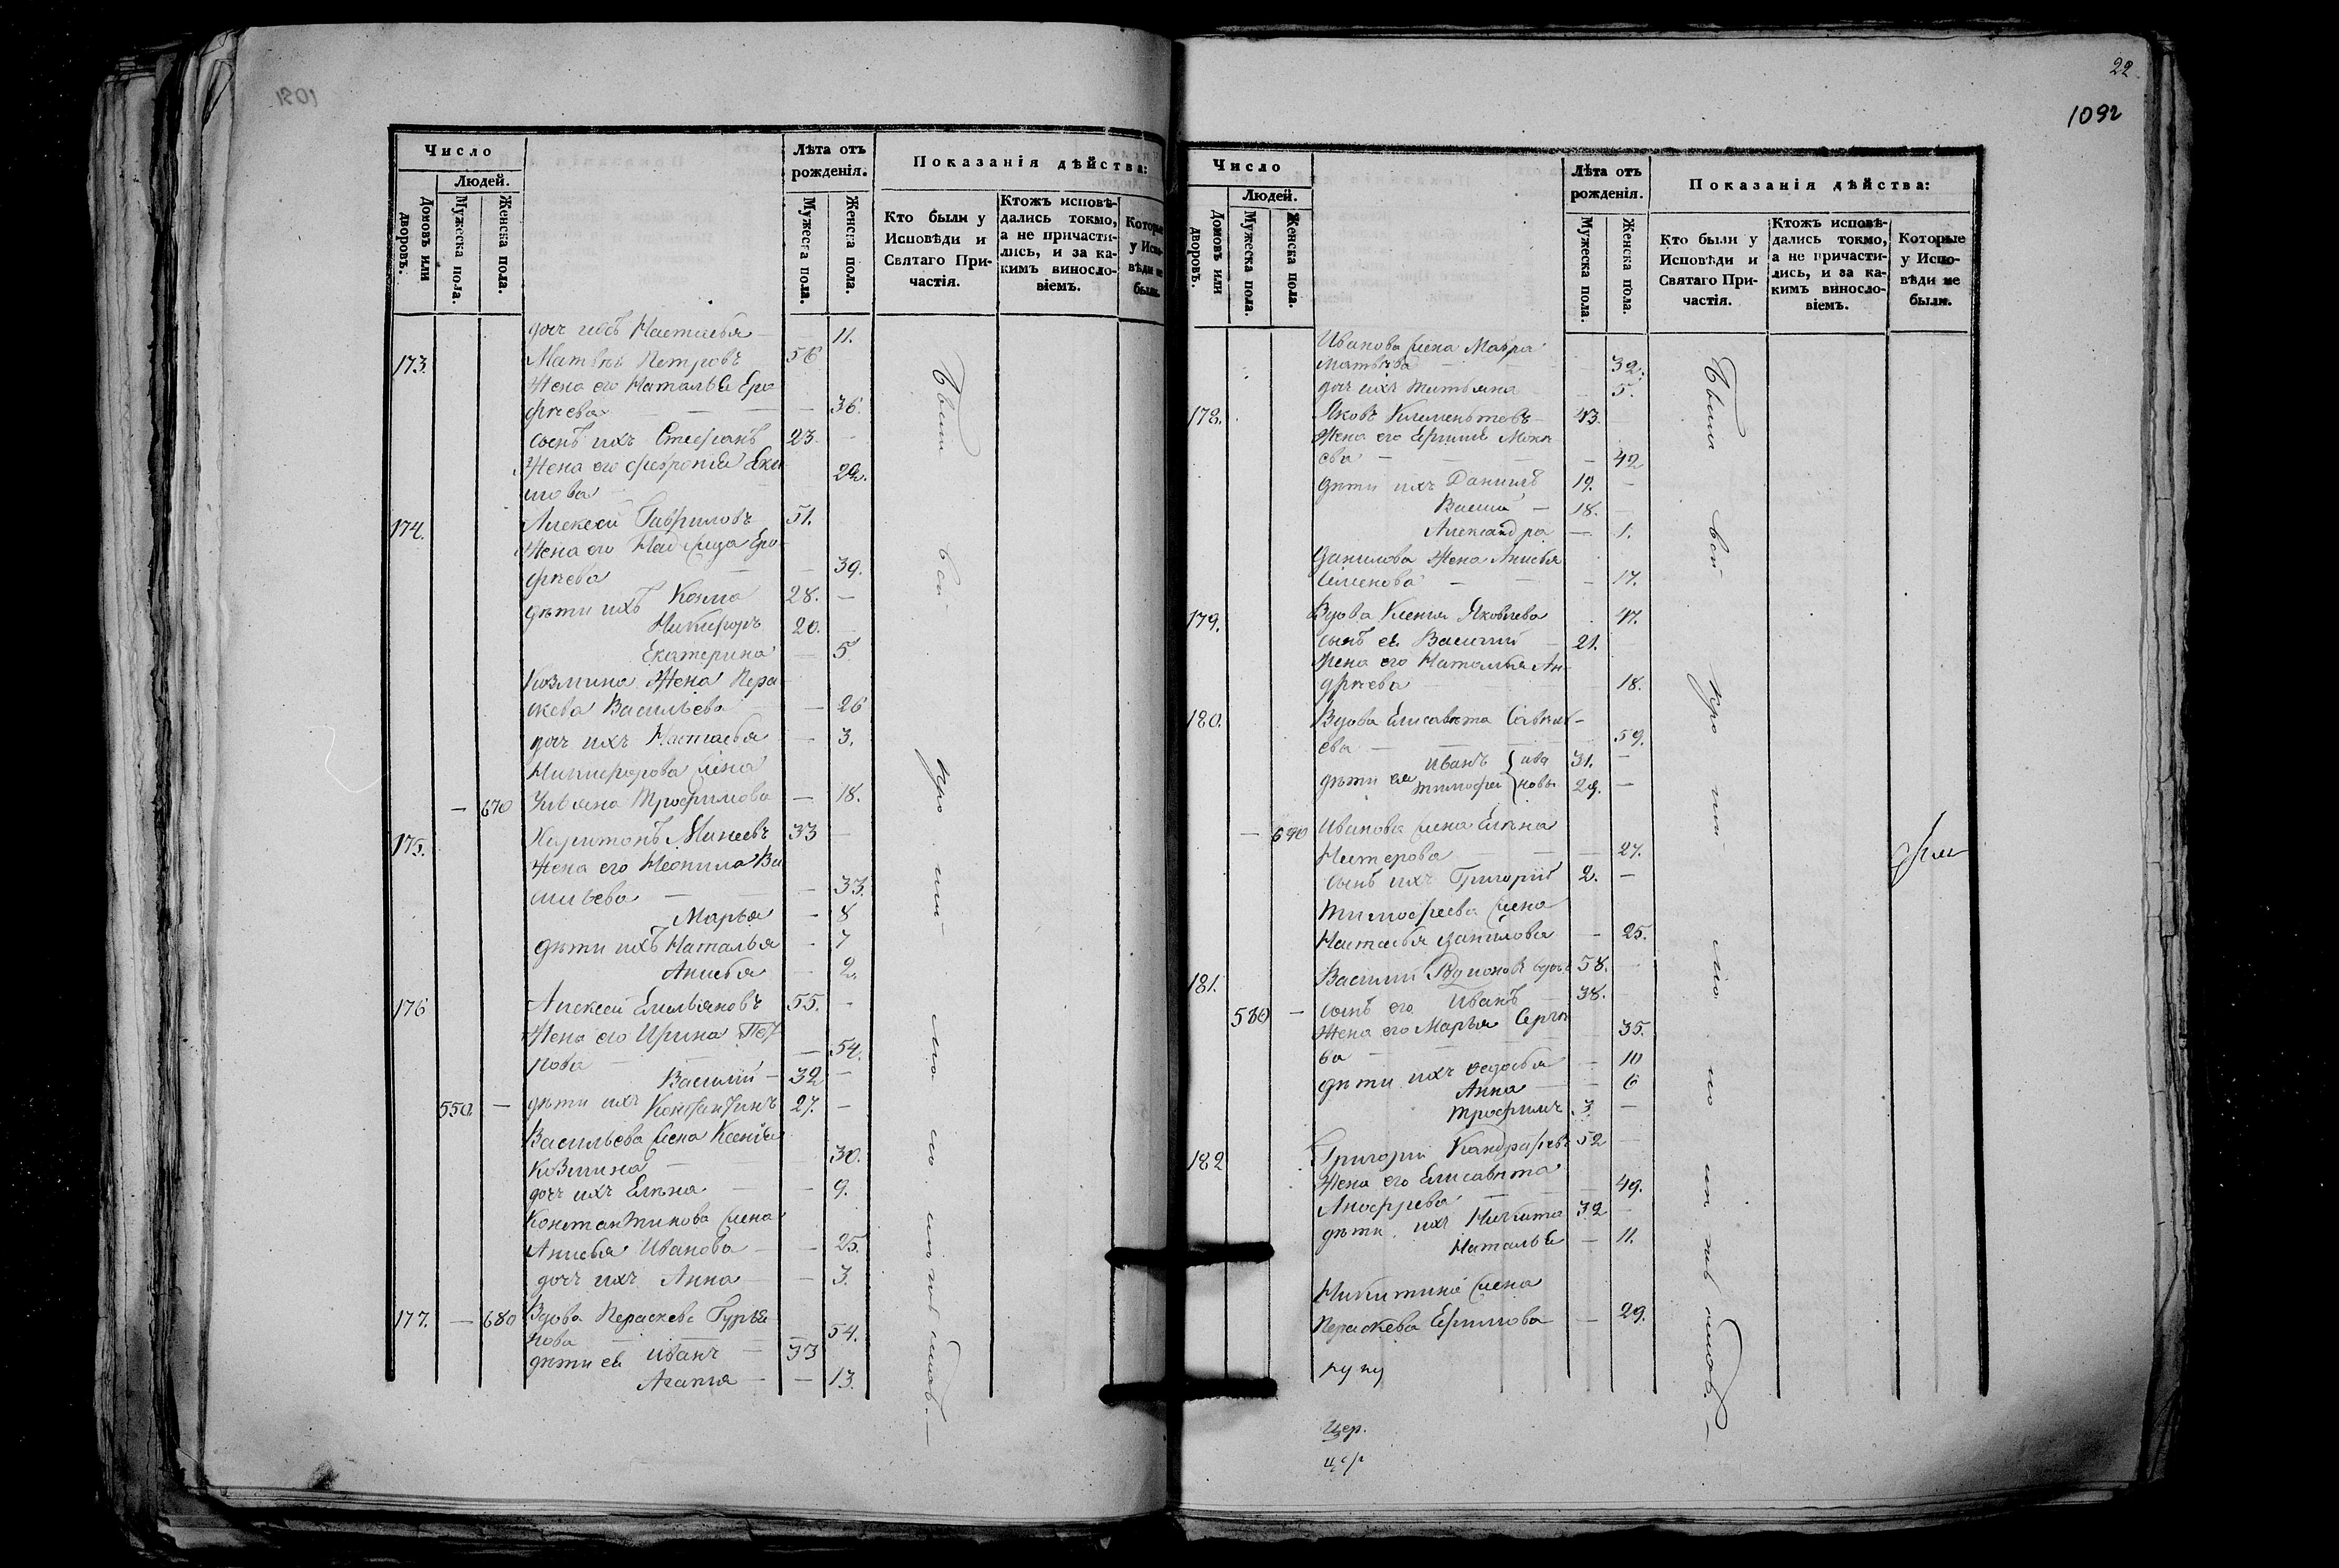 1091
Число
Людей.
Домовъ или дворовъ.
Мужеска пола.
Женска пола.
Лѣта отъ рожденія.
Мужеска пола.
Женска пола.
Показанія дѣйства:
Кто были у Исповѣди и Святаго Причастія.
Ктожъ исповѣдались токмо, а не причастились, и за какимъ винословіемъ.
Которые у Исповѣди не были.
дочь ихъ Настасья — 11.
173. Матвѣй Петровъ 56
Жена его Наталья Еро
фѣева — 36.
сынъ ихъ Стефанъ 23. —
Жена его Феврониа Еки
мова 22.
174. Алексей Гавриловъ 51.
Жена его Надежда Еро
фѣева — 39.
дѣти ихъ Козма 28. —
Никифоръ 20. —
Екатерина — 5
Козмина Жена Пара
скева Васильева — 26
дочь ихъ Настасья — 3.
Никифорова жена
— 670 Ульяна Трофимова — 18.
175. Харитонъ Минеевъ 33 —
Жена его Неонила Ва
сильева — 33.
Марья — 8
дѣти ихъ Наталья — 7
Анисья — 2.
176 Алексей Емельяновъ 55. —
Жена его Ирина Пет
рова — 54.
Василий — 32 —
550. — дѣти ихъ Константинъ 27. —
Васильева жена Ксения
Козмина — 30.
дочь ихъ Елена — 9.
Константинова жена
Анисья Иванова — 25.
дочь ихъ Анна — 3.
177. — 680 Вдова Пераскева Гурья
нова 54.
дѣти ея Иванъ — 33
Агапия — 13.
Были всѣ
22
1092
Число
Людей.
Домовъ или дворовъ.
Мужеска пола.
Женска пола.
Лѣта отъ рожденія.
Мужеска пола.
Женска пола.
Показанія дѣйства:
Кто были у Исповѣди и Святаго Причастія.
Ктожъ исповѣдались токмо, а не причастились, и за какимъ винословіемъ.
Которые у Исповѣди не были.
Иванова жена Мавра
Матвѣева — 32.
дочь ихъ Татьяна — 5.
178. Яковъ Климентовъ — 43.
Жена его
ева — 42
дѣти ихъ Даниилъ 19. —
Василий — 18. —
Александра — 1.
Данилова Жена Анисья
Семенова — 17.
179. Вдова Ксения Яковлева 47.
сынъ ея Василий — 21.
Жена его Наталья Ан-
дрѣева — 18.
180. Вдова Елисавета Савель-
ева — 59.
Иванъ } Ива 31. —
дѣти ея Тимофей } новы 29. —
— 690 Иванова жена Елѣна
Нестерова — 27.
сынъ ихъ Григорий 2. —
Тимофеева жена
Настасья Данилова — 25.
181. Василий Родионовъ вдовъ 58. —
580 — сынъ его Иванъ 38.
Жена его Марья Сергѣе
ва — 35.
дѣти ихъ Федосья — 10
Анна — 6
Трофимъ 3. —
182 Григорий 52 —
Жена его Елисавета
— 49.
дѣти ихъ Никита 32 —
Наталья — 11.
Никитина жена
Пераскева Ефимова — 29.
Были всѣ